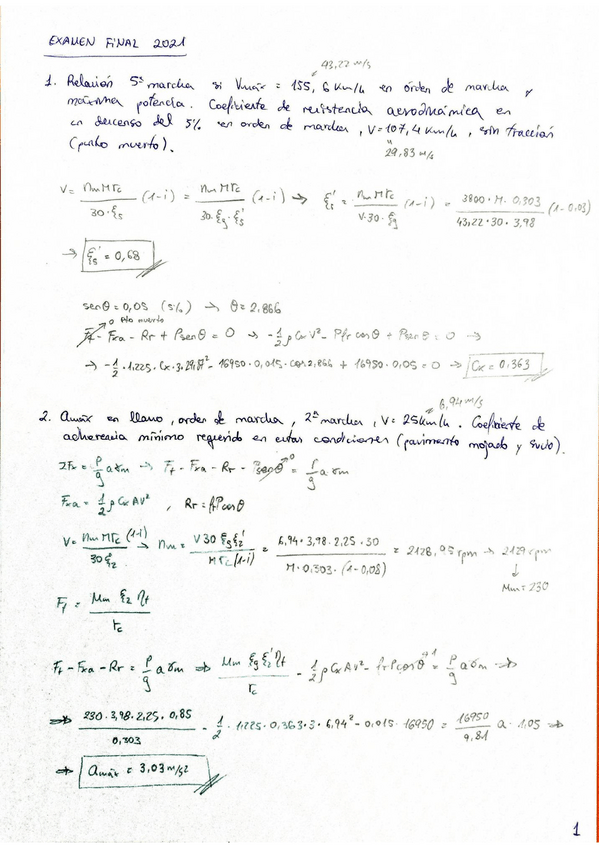 EXAMEN FINAL 2021
43,22 m/s
1. Relación 5ª marcha si Vmáx = 155,6 Km/h en orden de marcha y
máxima potencia. Coeficiente de resistencia aerodinámica en
un descenso del 5% en orden de marcha, V=107,4 Km/h, sin tracción
(punto muerto).
29,83 m/s
V = nm π rc / 30·ξ5 (1-i) = nm π rc / 30·ξg·ξ5' (1-i) → ξ5' = nm π rc / V·30·ξg (1-i) = 3800·π·0,303 / 43,22·30·3,98 (1-0,03)
→ ξ5' = 0,68
senθ = 0,05 (5%) → θ = 2,866
0 Pto muerto
Ft - Fxa - Rr + Psenθ = 0 → -1/2 ρ Cx V² - Pfr cosθ + Psenθ = 0 →
→ -1/2 · 1,225 · Cx · 3 · 29,83² - 16950 · 0,015 · cos 2,866 + 16950 · 0,05 = 0 → Cx = 0,363
6,94 m/s
2. amáx en llano, orden de marcha, 2ª marcha, V = 25km/h. Coeficiente de
adherencia mínimo requerido en estas condiciones (pavimento mojado y sucio).
ΣFx = P/g a γm → Ft - Fxa - Rr - Psenθ⁰ = P/g a γm
Fxa = 1/2 ρ Cx A V² , Rr = fr P cosθ
V = nm π rc (1-i) / 30 ξ2 → nm = V 30 ξg ξ2' / π rc (1-i) = 6,94 · 3,98 · 2,25 · 30 / π · 0,303 · (1-0,08) = 2128,95 rpm → 2129 rpm
↓
Mm = 230
Ft = Mm ξ2 ηt / rc
Ft - Fxa - Rr = P/g a γm ⇒ Mm ξg ξ2' ηt / rc - 1/2 ρ Cx A V² - fr P cosθ¹ = P/g a γm ⇒
⇒ 230 · 3,98 · 2,25 · 0,85 / 0,303 - 1/2 · 1,225 · 0,363 · 3 · 6,94² - 0,015 · 16950 = 16950 / 9,81 a · 1,05 ⇒
⇒ amáx = 3,03 m/s2
1